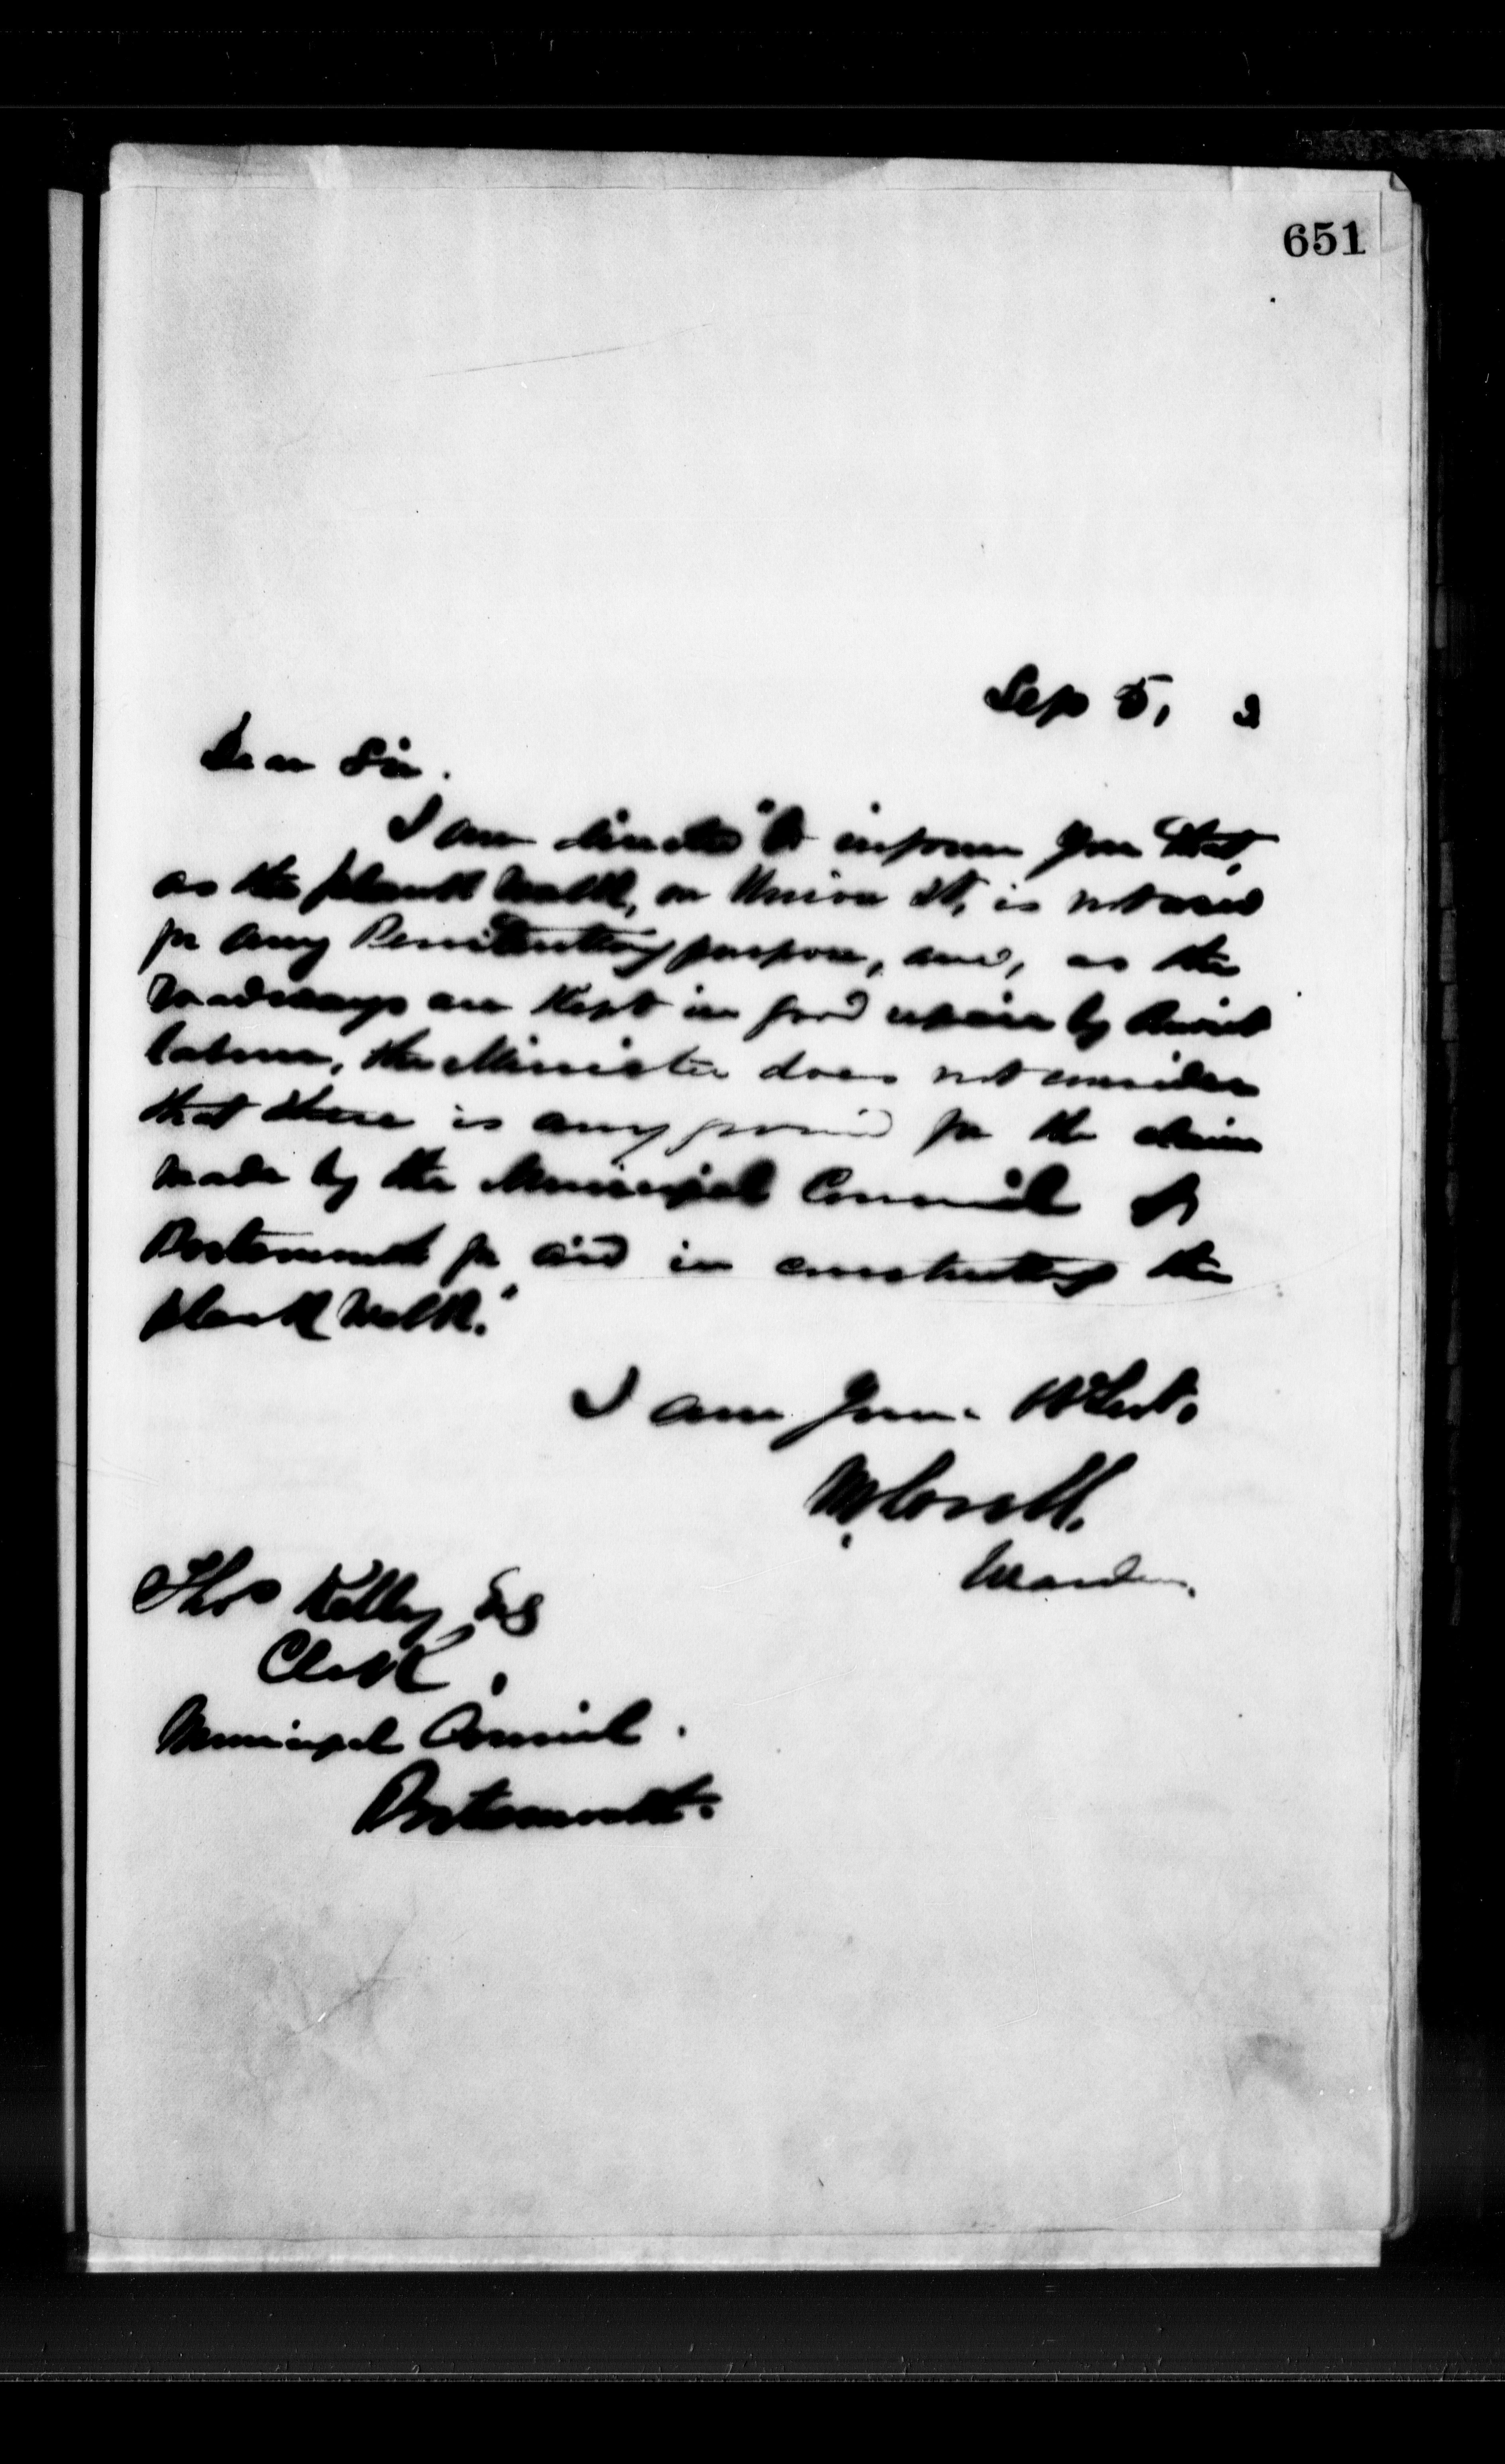 651
Sep 5, 2
Dear Sir.
I am directed "to inform you that,
as the plank walk, on Union St, is not used
for any Penitentiary purpose, and, as the
roadways are kept in good repair by Convict
labour, the Minister does not consider
that there is any ground for the claim
made by the Municipal Council of
Portsmouth for aid in constructing the
plank walk."
I am Yours
M Lavell.
Warden.
Thos Kelly Esq
Clerk,
Municipal Council.
Portsmouth.